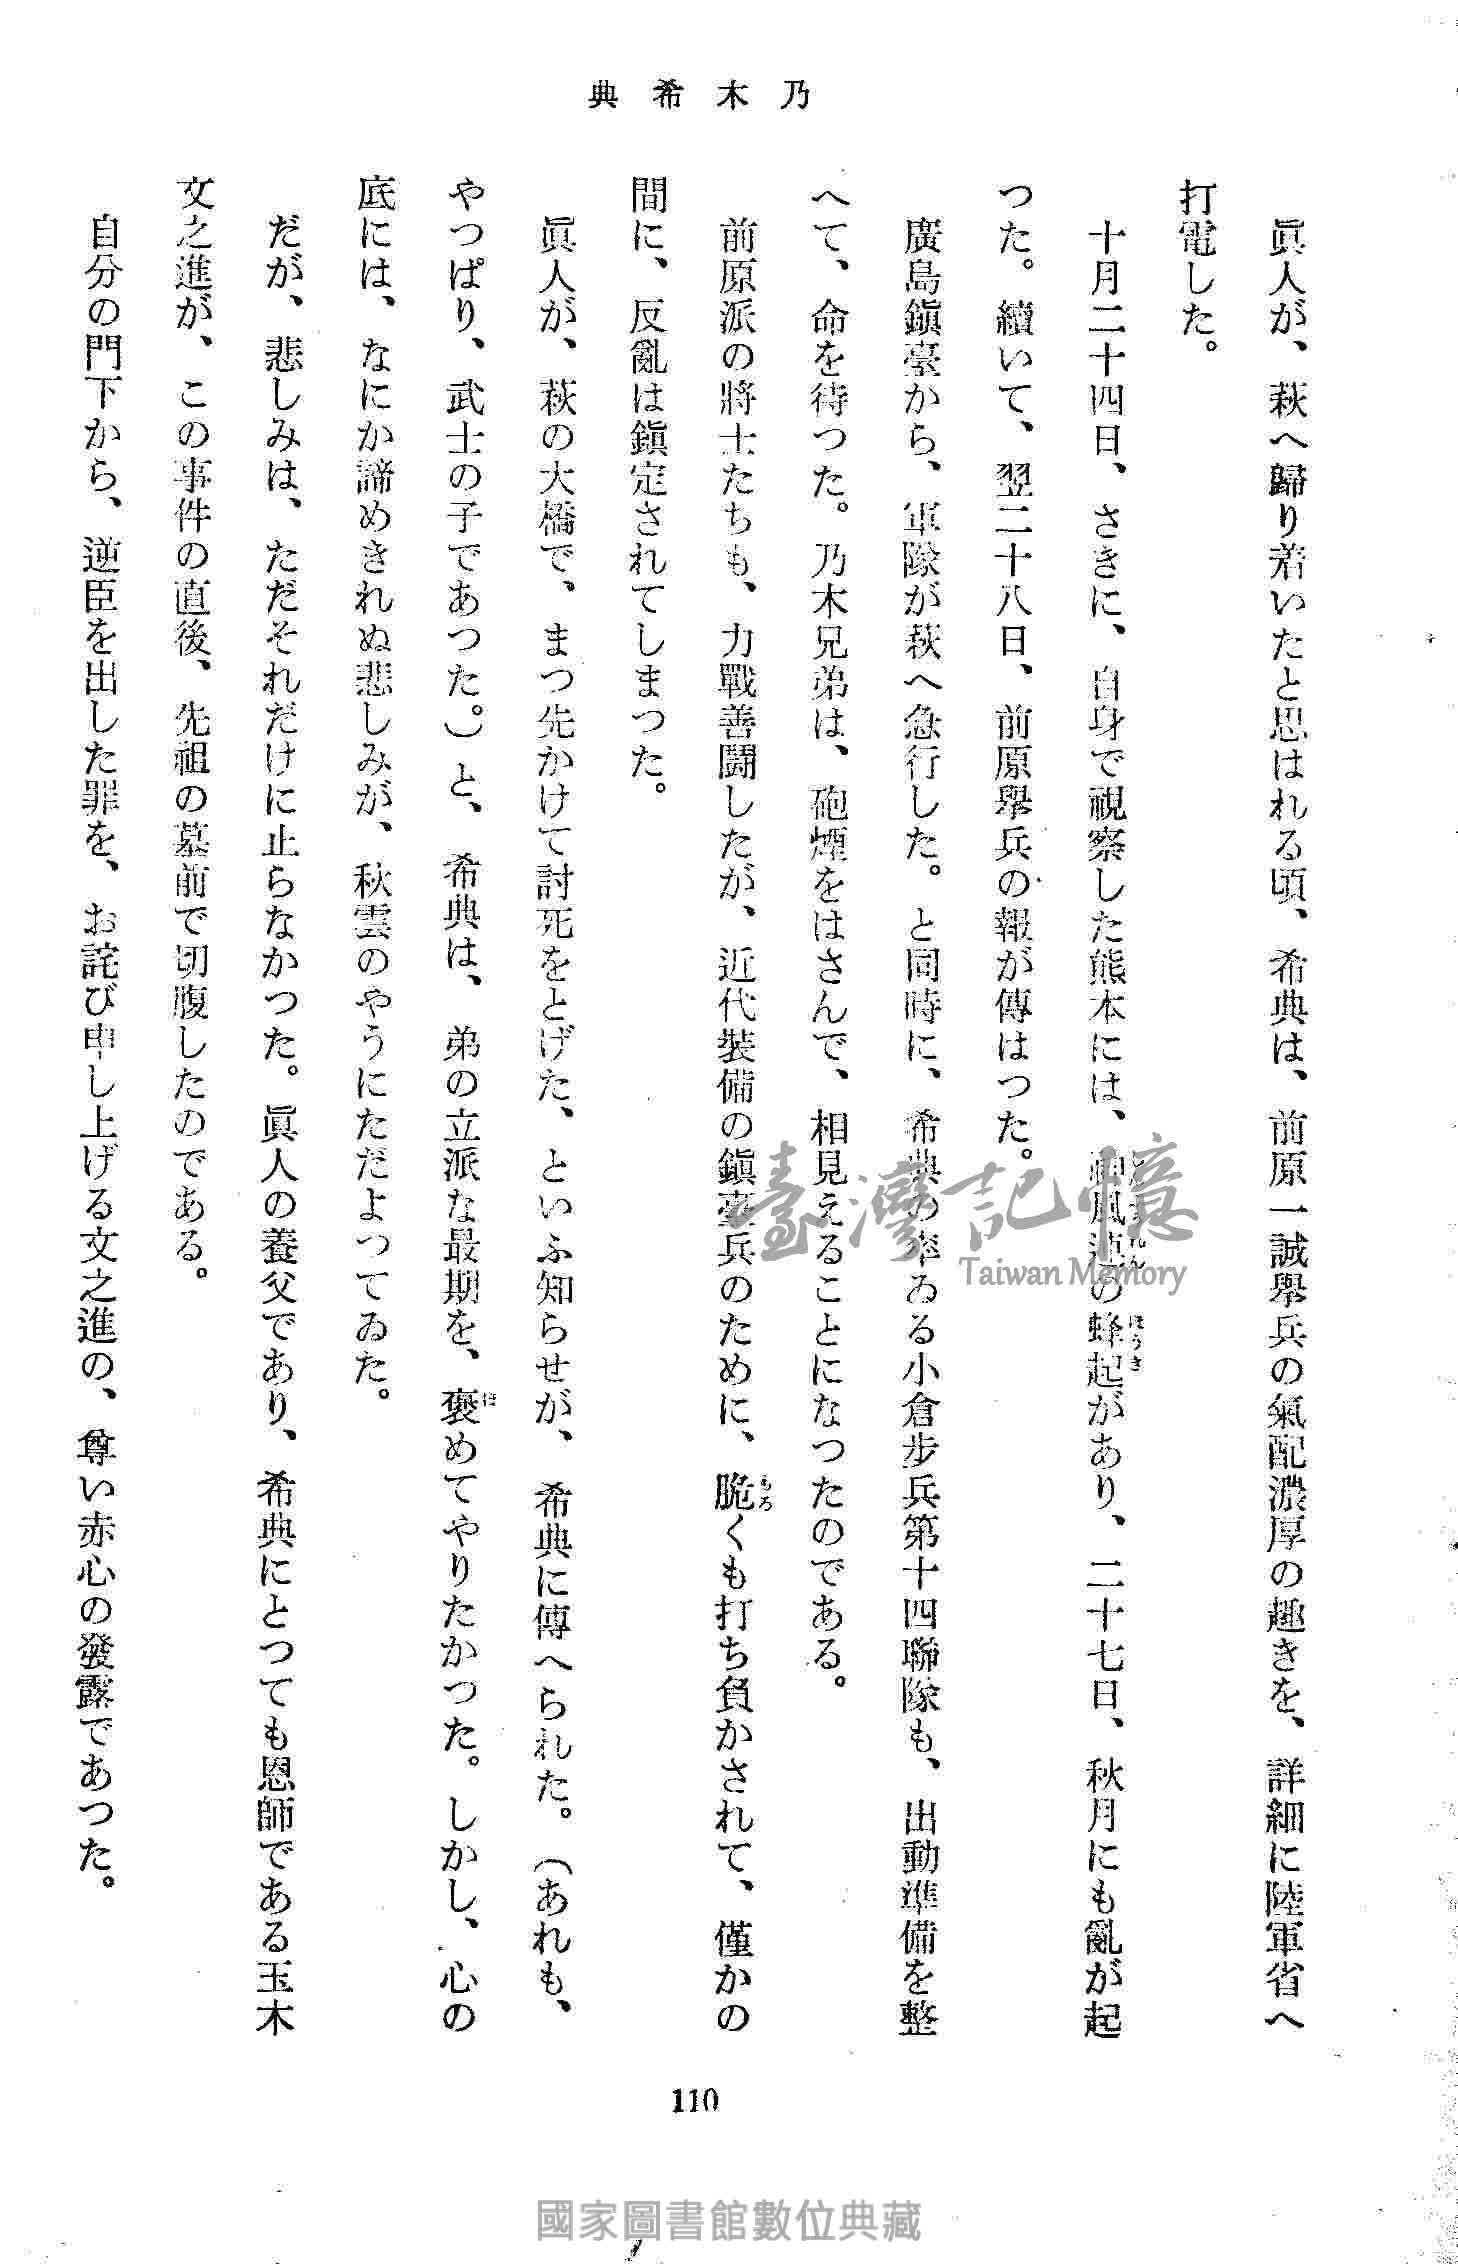 乃木希典
眞人が、萩へ歸り着いたと思はれる頃、希典は、前原一誠擧兵の氣配濃厚の趣きを、詳細に陸軍省へ
打電した。
十月二十四日、さきに、自身で視察した熊本には、神風連の蜂起があり、二十七日、秋月にも亂が起
つた。續いて、翌二十八日、前原擧兵の報が傳はつた。
廣島鎭臺から、軍隊が萩へ急行した。と同時に、希典の率ゐる小倉歩兵第十四聯隊も、出動準備を整
へて、命を待つた。乃木兄弟は、砲煙をはさんで、相見えることになつたのである。
前原派の將士たちも、力戰善鬪したが、近代裝備の鎭臺兵のために、脆くも打ち負かされて、僅かの
間に、反亂は鎭定されてしまつた。
眞人が、萩の大橋で、まつ先かけて討死をとげた、といふ知らせが、希典に傳へられた。（あれも、
やつぱり、武士の子であつた。）と、希典は、弟の立派な最期を、褒めてやりたかつた。しかし、心の
底には、なにか諦めきれぬ悲しみが、秋雲のやうにただよつてゐた。
だが、悲しみは、ただそれだけに止らなかつた。眞人の養父であり、希典にとつても恩師である玉木
文之進が、この事件の直後、先祖の墓前で切腹したのである。
自分の門下から、逆臣を出した罪を、お詫び申し上げる文之進の、尊い赤心の發露であつた。
110
臺灣記憶
Taiwan Memory
國家圖書館數位典藏